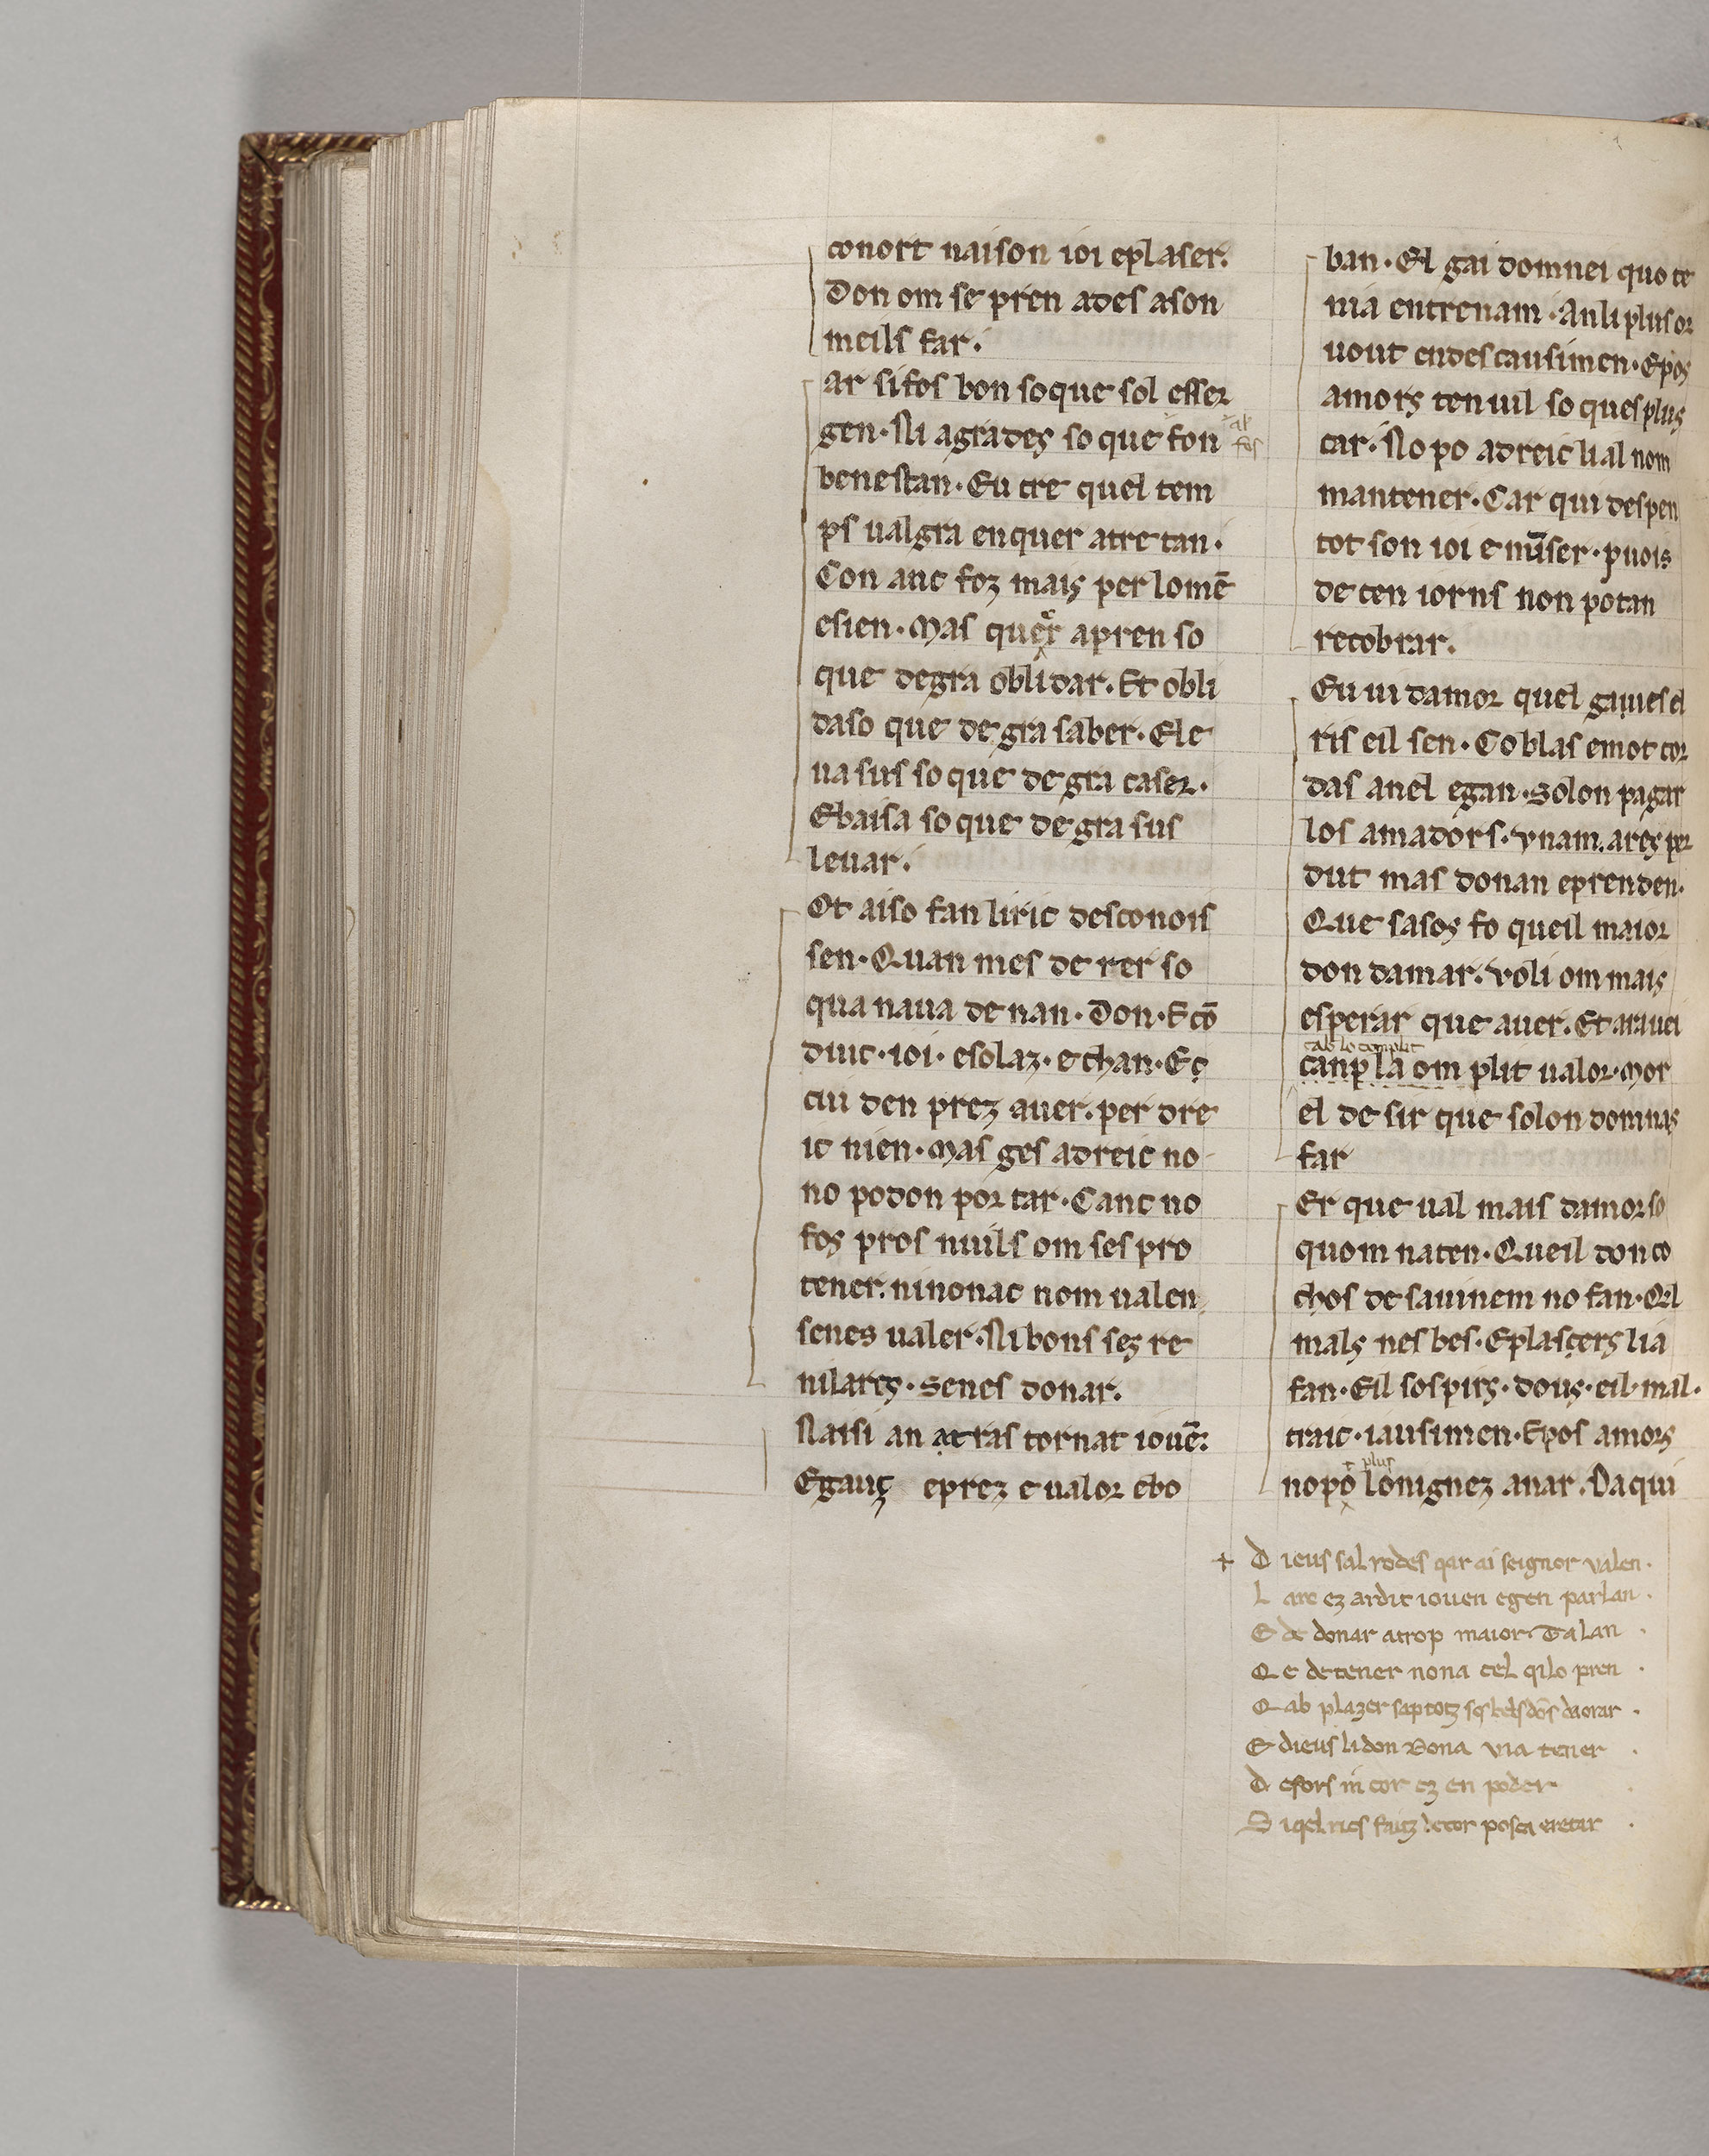 conort naison ioi eplaser.
Don om se pren ades ason
meils far.
ar si fos bon so que sol esser
gen. Ni agrades so que fon
al fos
benestan. Eu cre quel tem
ps ualgra enquer atretan.
Con anc foz mais per lomē
esien. Mas quer apren so
que degra oblidar. Et obli
daso que degra saber. Ele
ua sus so que degra caser.
Ebaisa so que degra sus
leuar.
Ot aiso fan liric desconois
sen. Quan mes de rer so
qua naua denan. Don. E cō
duic. ioi. esolaz. e chan. Eç
cui den prez auer. per dre
ic nien. Mas ges adreic no
no podon portar. Canc no
fos pros nuils om ses pro
tener. ninonac nom ualen
senes ualer. Ni bons ses re
nilarcs. Senes donar.
Naisi an atras tornat iouē:
Egauç eprez e ualor ebo
ban. El gai domnei quo te
nia entrenam. An li plusor
uout endescausimen. Epos
amors ten uil so ques plus
car. No po adreic lial nom
mantener. Car qui despen
tot son ioi e mūser. puois
de cen iorns non potan
recobrar.
Eu ui damor quel gaines el
ris eil sen. Coblas emot cor
das anel egan. Solon pagar
los amadors. Vnam. ares per
dut mas donan eprenden.
Que sasos fo queil maior
don damar. Voli om mais
esperar que auer. Et ar auei
cab lo complit
canpla om plit ualor. Mor
el desir que solon domnas
far
Er que ual mais damor so
quom naten. Queil don co
chos de sauinem no fan. Qel
mals nes bes. Eplasçers lia
fan. Eil sospirs. dous. eil. mal.
traic. iausimen. Epos amors
plus
nopo lonignez anar. Daqui
+ D ieus sal rodes qar ai seignor valen.
L arc ez ardit iouen egen parlan.
E de donar atrop maior Talan.
Q e detener nona cel qilo pren.
Q ab plazer sap totz sos bels dōs daorar.
E dieus li don Dona via tener.
D esors m cor ez en poder
S iqel rics faitz decor posca eretar.